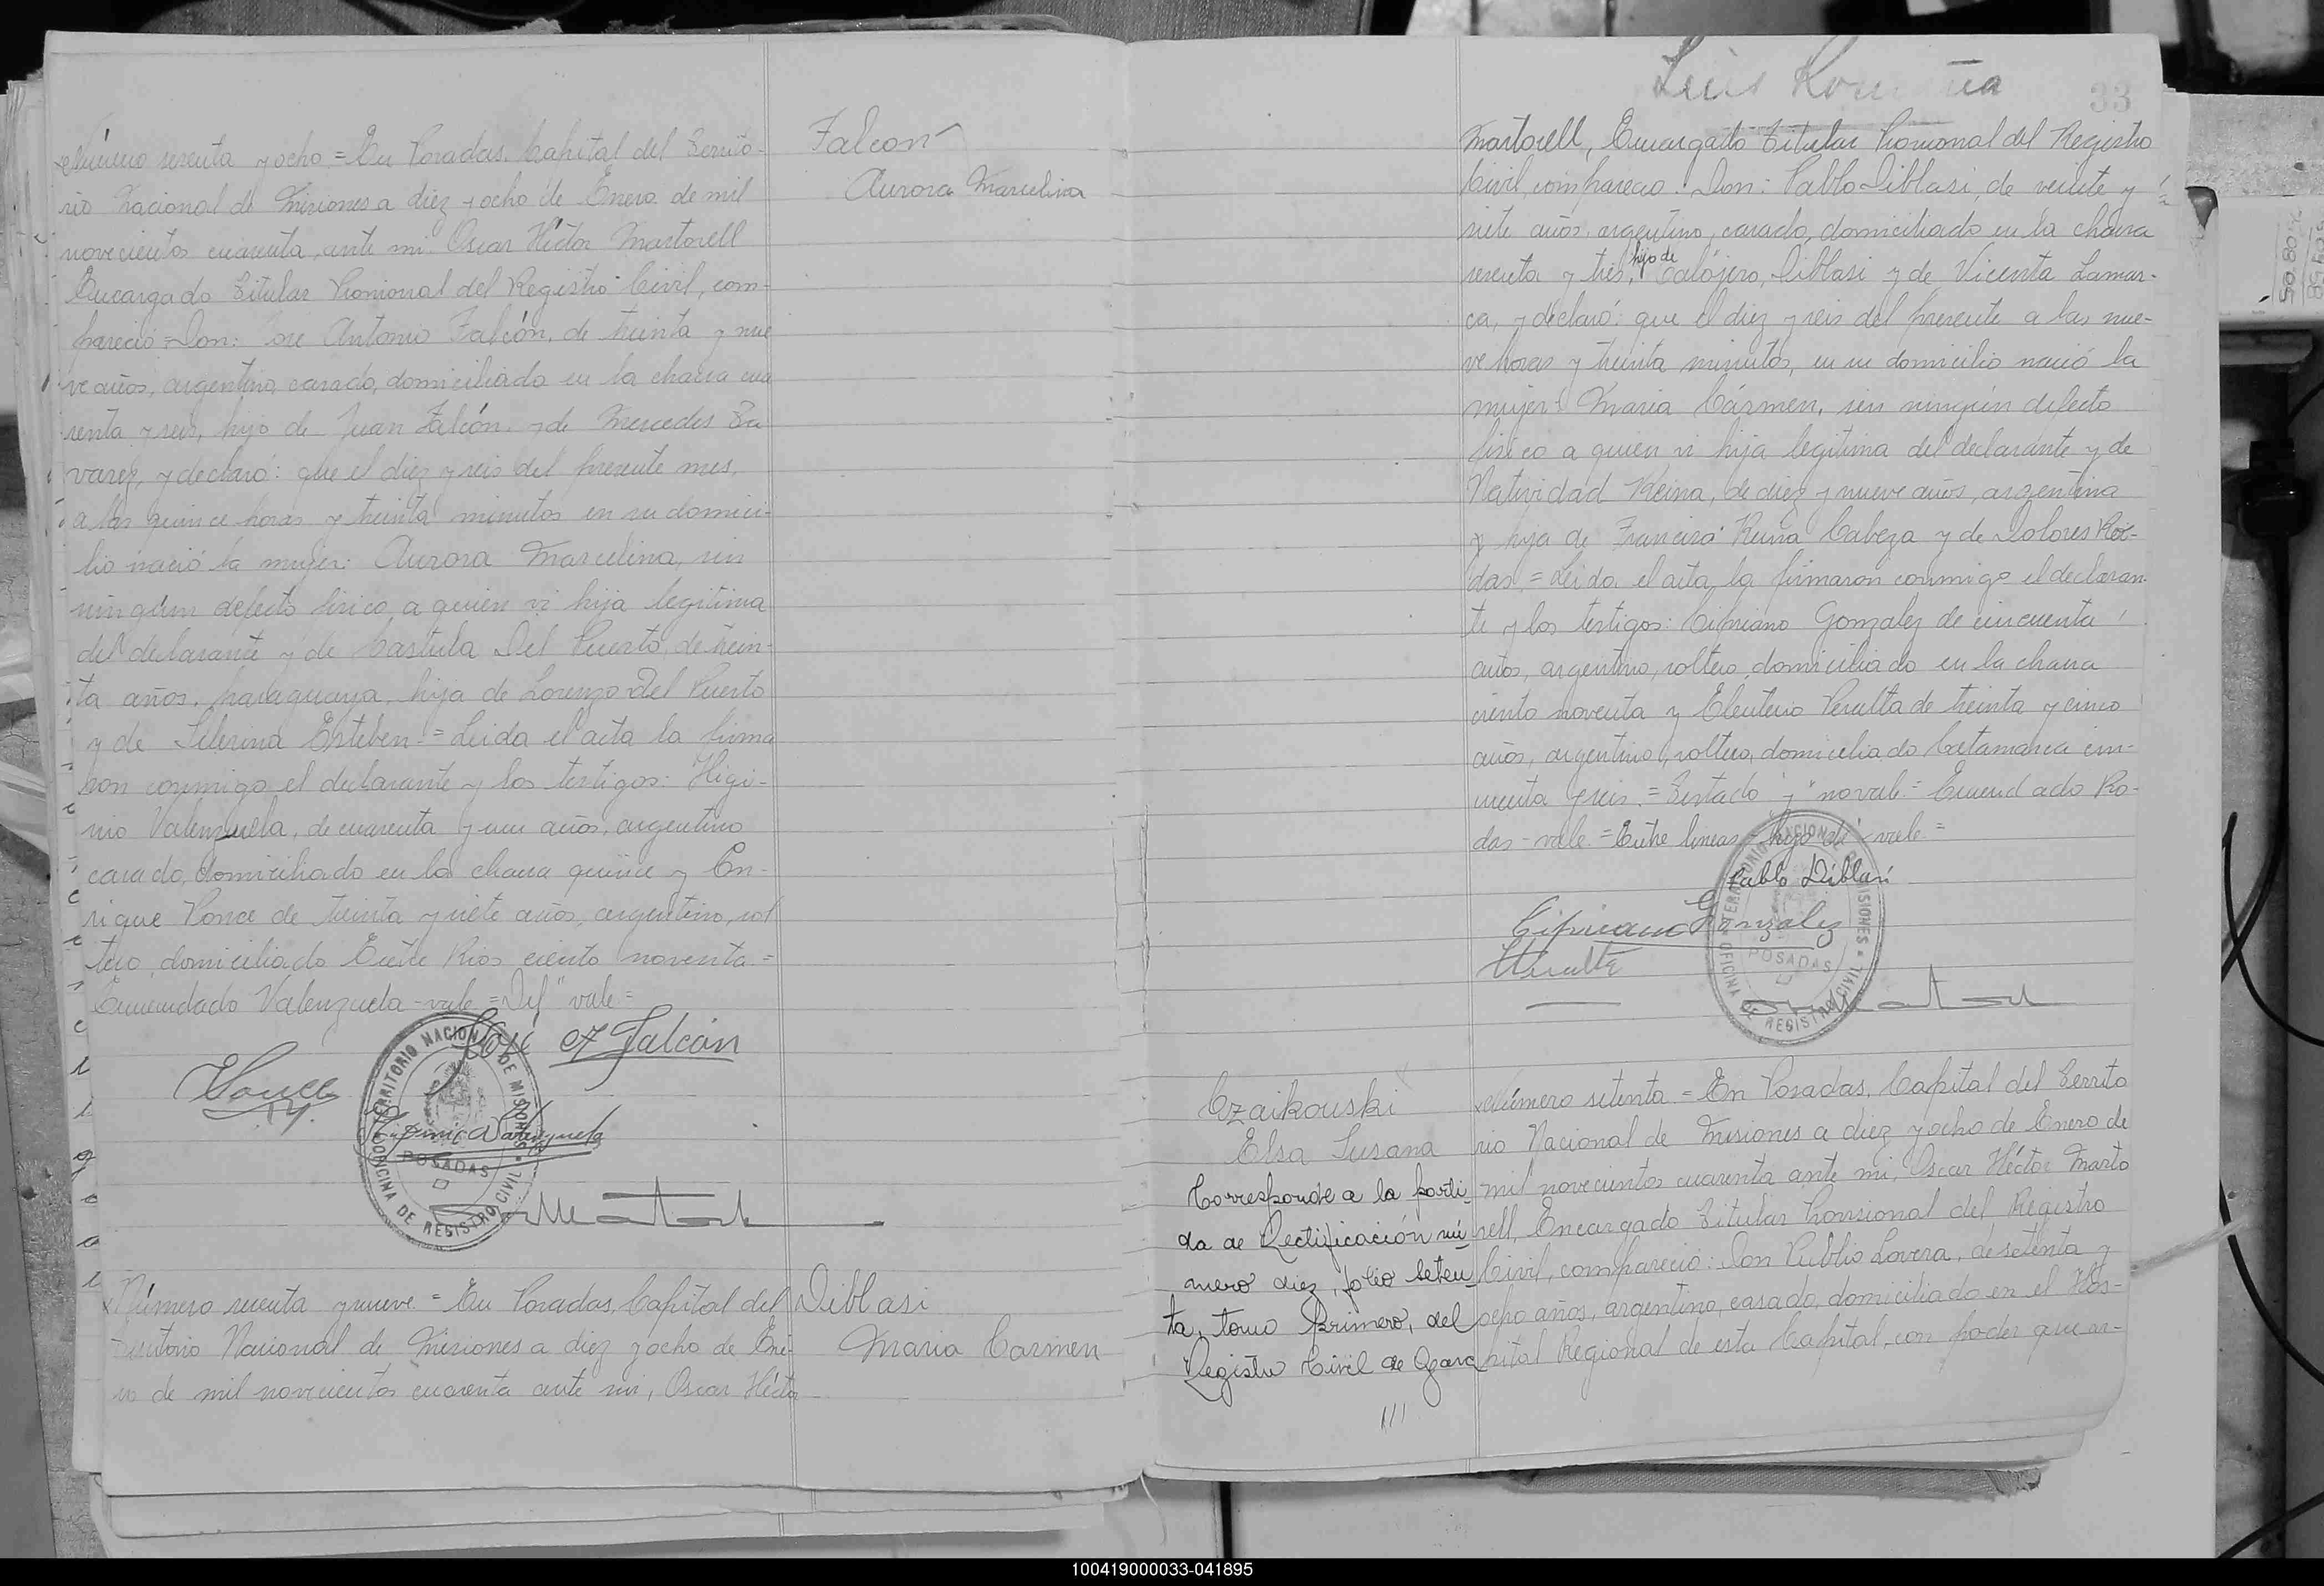 Número sesenta y ocho = En Posadas, Capital del Territo-
rio Nacional de Misiones a diez y ocho de Enero de mil
novecientos cuarenta, ante mi Oscar Héctor Martorell
Encargado Titular Provisional del Registro Civil, com-
pareció = Don: José Antonio Falcón, de treinta y nue
ve años, argentino, casado, domiciliado en la chacra cua
renta y seis, hijo de Juan Falcón y de Mercedes Ta
varez, y declaró: que el diez y seis del presente mes,
a las quince horas y treinta minutos en su domici-
lio nació la mujer: Aurora Marcelina, sin
ningún defecto físico a quien vi hija legítima
del declarante y de Castula Del Puerto, de trein-
ta años, paraguaya, hija de Lorenzo Del Puerto
y de Seferina Esteben = Leida el acta la firma
ron conmigo el declarante y los testigos: Higi-
nio Valenzuela, de cuarenta y un años, argentino
casado, domiciliado en la chacra quince y En-
rique Ponce de treinta y siete años, argentino, sol
tero, domiciliado Entre Rios ciento noventa =
Enmendado Valenzuela - vale = Del" vale =
José A Falcón
Higinio Valenzuela
TERRITORIO NACIONAL DE MISIONES
POSADAS
OFICINA DE REGISTRO CIVIL
Falcón
Aurora Marcelina
Número sesenta y nueve = En Posadas, Capital del
Territorio Nacional de Misiones a diez y ocho de Ene-
ro de mil novecientos cuarenta ante mi, Oscar Héctor
Diblasi
Maria Carmen
Luis
33
Martorell, Encargado Titular Provisional del Registro
Civil, compareció: Don: Pablo Diblasi, de veinte y
siete años, argentino, casado, domiciliado en la chacra
sesenta y tres, hijo de Calójero, Diblasi y de Vicenta Lamar-
ca, y declaró: que el diez y seis del presente a las nue-
ve horas y treinta minutos, en su domicilio nació la
mujer: Maria Cármen, sin ningún defecto
físico a quien vi hija legítima del declarante y de
Natividad Reina, de diez y nueve años, argentina
y hija de Francisco Reina Cabeza y de Dolores Ro-
das = Leida el acta, la firmaron conmigo el declaran-
te y los testigos: Cipriano Gonzalez de cincuenta
años, argentino, soltero, domiciliado en la chacra
ciento noventa y Eleuterio Peralta de treinta y cinco
años, argentino, soltero, domiciliado Catamarca cin-
cuenta y seis = Testado "y" no vale = Enmendado Ro-
das - vale = Entre lineas - hijo de - vale =
Pablo Diblasi
Cipriano Gonzalez
TERRITORIO NACIONAL DE MISIONES
POSADAS
OFICINA DE REGISTRO CIVIL
Czaikouski
Elsa Susana
Corresponde a la parti-
da de Rectificación nú-
mero diez, folio seten-
ta, tomo primero, del
Registro Civil de Oberá
///
Número setenta = En Posadas, Capital del Territo
rio Nacional de Misiones a diez y ocho de Enero de
mil novecientos cuarenta ante mi, Oscar Héctor Marto
rell, Encargado Titular Provisional del Registro
Civil, compareció: Don Publio Lovera, de setenta y
ocho años, argentino, casado, domiciliado en el Hos-
pital Regional de esta Capital, con poder que ar-
100419000033-041895